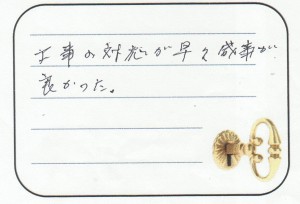 工事の対応が早く感事が
良かった。